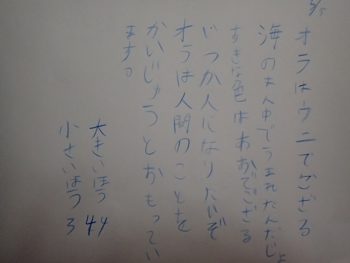 オラはウニでござる
海のまん中でうまれたんだじょ
すきな色はあおでござる
いつか人になりたいぞ
オラは人間のことを
かいじゅうとおもってい
ます。
大きいほう 44
小さいほう 3